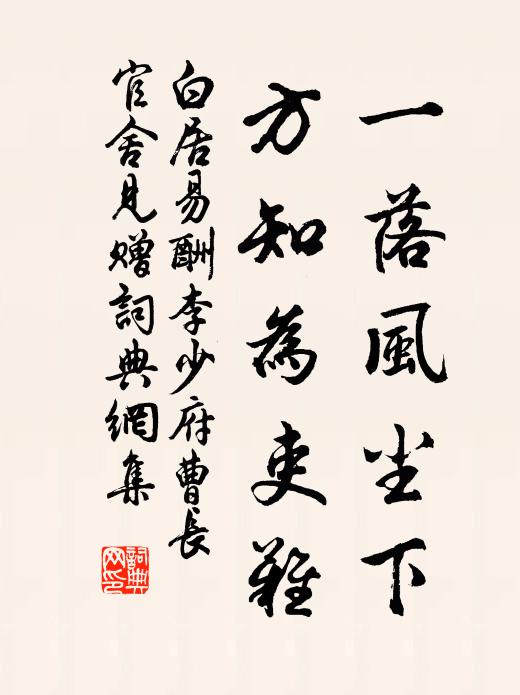 一落風尘下
方知為吏難
白居易酬李少府曹長
官舍見贈詞典網集
詞典
网印